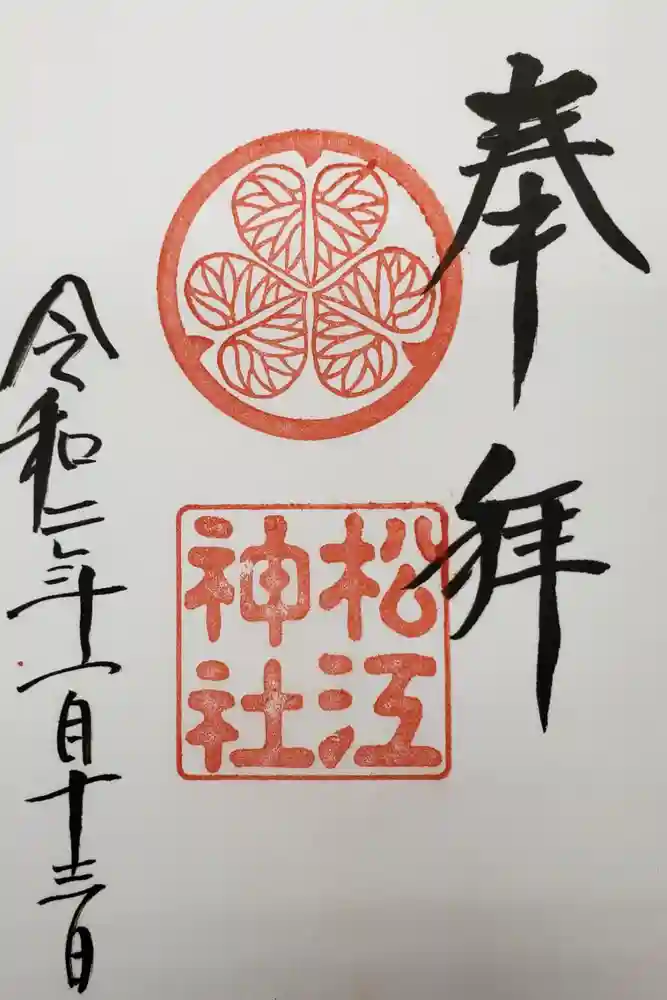 奉拝
松江
神社
令和二年十一月十三日